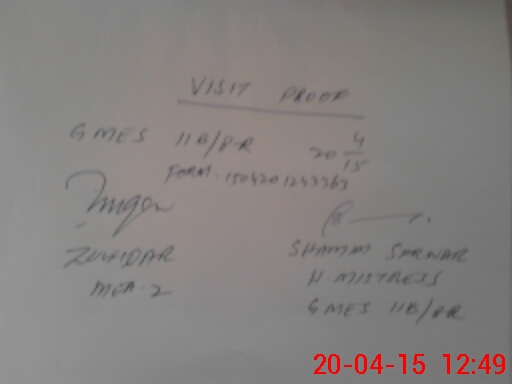 VISIT PROOF
GMES 11B/P-R 20 4/15
FORM-1504201243363
ZULFIQAR
MEA-2
SHAMIM SARWAR
H-MISTRESS
GMES 11B/P-R
20-04-15 12:49